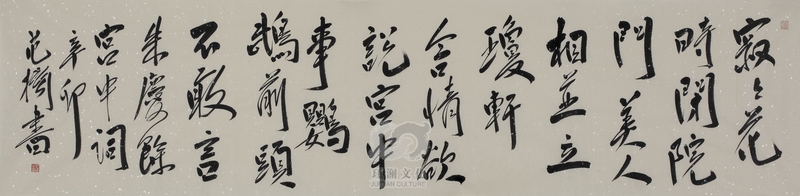 寂々花
時閉院
門美人
相並立
瓊軒
含情欲
說宮中
事鸚
鵡前頭
不敢言
朱慶餘
宮中詞
辛卯
范橋書
JULAN CULTURE